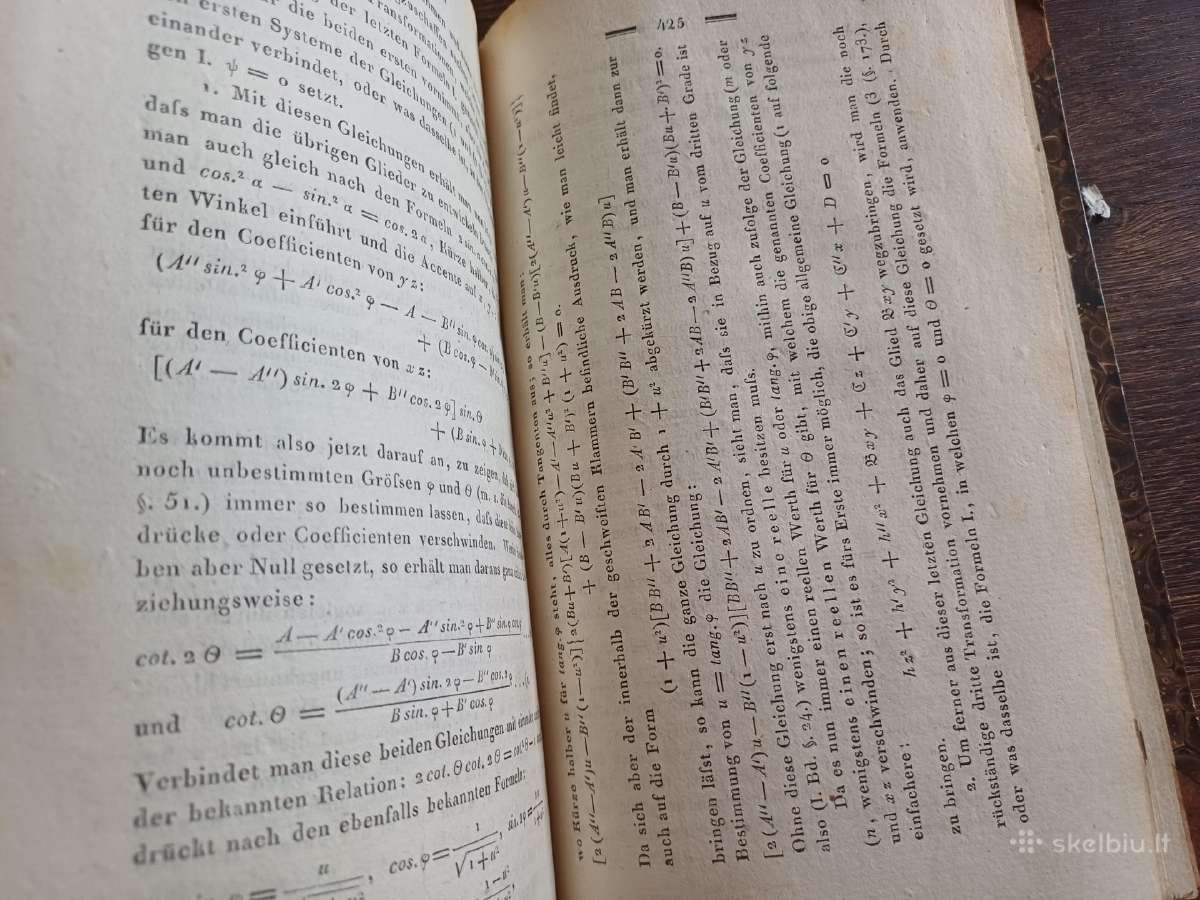 einander verbindet, oder was dasselbe ist, in
gen I. ψ = 0 setzt.
1. Mit diesen Gleichungen erhält man, wenn
daſs man die übrigen Glieder zu entwickeln
man auch gleich nach den Formeln 2 sin.
und cos.² α — sin.² α = cos. 2 α, Kürze halber,
ten Winkel einführt und die Accente auf x,
für den Coefficienten von y z:
(A'' sin.² φ + A' cos.² φ — A — B'' sin. φ cos.
+ (B cos. φ —
für den Coefficienten von x z:
[(A' — A'') sin. 2 φ + B'' cos. 2 φ] sin. Θ
+ (B sin. φ +
Es kommt also jetzt darauf an, zu zeigen,
noch unbestimmten Gröſsen φ und Θ (m. s.
§. 51.) immer so bestimmen lassen, daſs diese
drücke oder Coefficienten verschwinden.
ben aber Null gesetzt, so erhält man daraus
ziehungsweise:
cot. 2 Θ = A — A' cos.² φ — A'' sin.² φ + B'' sin. φ cos. φ / B cos. φ — B' sin. φ
und cot. Θ = (A'' — A') sin. 2 φ — B'' cos. 2 φ / B sin. φ + B' cos. φ
Verbindet man diese beiden Gleichungen mit
der bekannten Relation: 2 cot. Θ cot. 2 Θ = cot.² Θ — 1
drückt nach den ebenfalls bekannten Formeln:
cos. φ = 1 / √1 + u²,
425
wo Kürze halber u für tang. φ steht, alles durch Tangenten aus; so erhält man:
[2 (A'' — A') u — B'' (1 — u²)] {2 (Bu + B') [A (1 + u²) — A' — A'' u² + B'' u] — (B — B' u) [2 (A'' — A') u — B'' (1 — u²)]}
+ (B — B' u) (Bu + B')² (1 + u²) = 0.
Da sich aber der innerhalb der geschweiften Klammern befindliche Ausdruck, wie man leicht findet,
auch auf die Form (1 + u²) [B B'' + 2 AB' — 2 A' B' + (B' B'' + 2 AB — 2 A'' B) u]
bringen läſst, so kann die ganze Gleichung durch 1 + u² abgekürzt werden, und man erhält dann zur
Bestimmung von u = tang. φ die Gleichung:
[2 (A'' — A') u — B'' (1 — u²)] [BB'' + 2 AB' — 2 A' B' + (B' B'' + 2 AB — 2 A'' B) u] + (B — B' u) (Bu + B')² = 0.
Ohne diese Gleichung erst nach u zu ordnen, sieht man, daſs sie in Bezug auf u vom dritten Grade ist
also (I. Bd. §. 24.) wenigstens eine reelle besitzen muſs.
Da es nun immer einen reellen Werth für u oder tang. φ, mithin auch zufolge der Gleichung (m oder
(n, wenigstens einen reellen Werth für Θ gibt, mit welchem die genannten Coefficienten von y z
und x z verschwinden; so ist es fürs Erste immer möglich, die obige allgemeine Gleichung (1 auf folgende
einfachere: h z² + h' y² + h'' x² + 𝔅 x y + ℭ z + ℭ' y + ℭ'' x + D = 0
zu bringen.
2. Um ferner aus dieser letzten Gleichung auch das Glied 𝔅 x y wegzubringen, wird man die noch
rückständige dritte Transformation vornehmen und daher auf diese Gleichung die Formeln (3 (§. 173.),
oder was dasselbe ist, die Formeln I., in welchen φ = 0 und Θ = 0 gesetzt wird, anwenden. Durch
skelbiu.lt